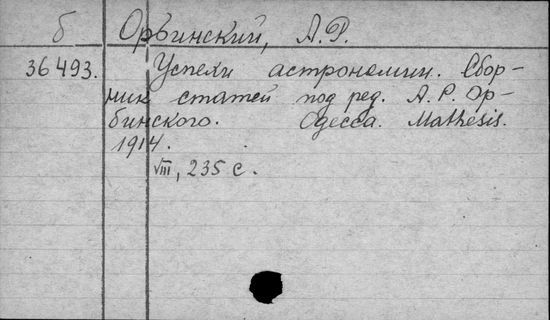 б Орбинский, А.Р.
36493. Успехи астрономии. Сбор-
ник статей под ред. А.Р. Ор-
бинского. Одесса. Mathesis.
1914.
VIII, 235 с.